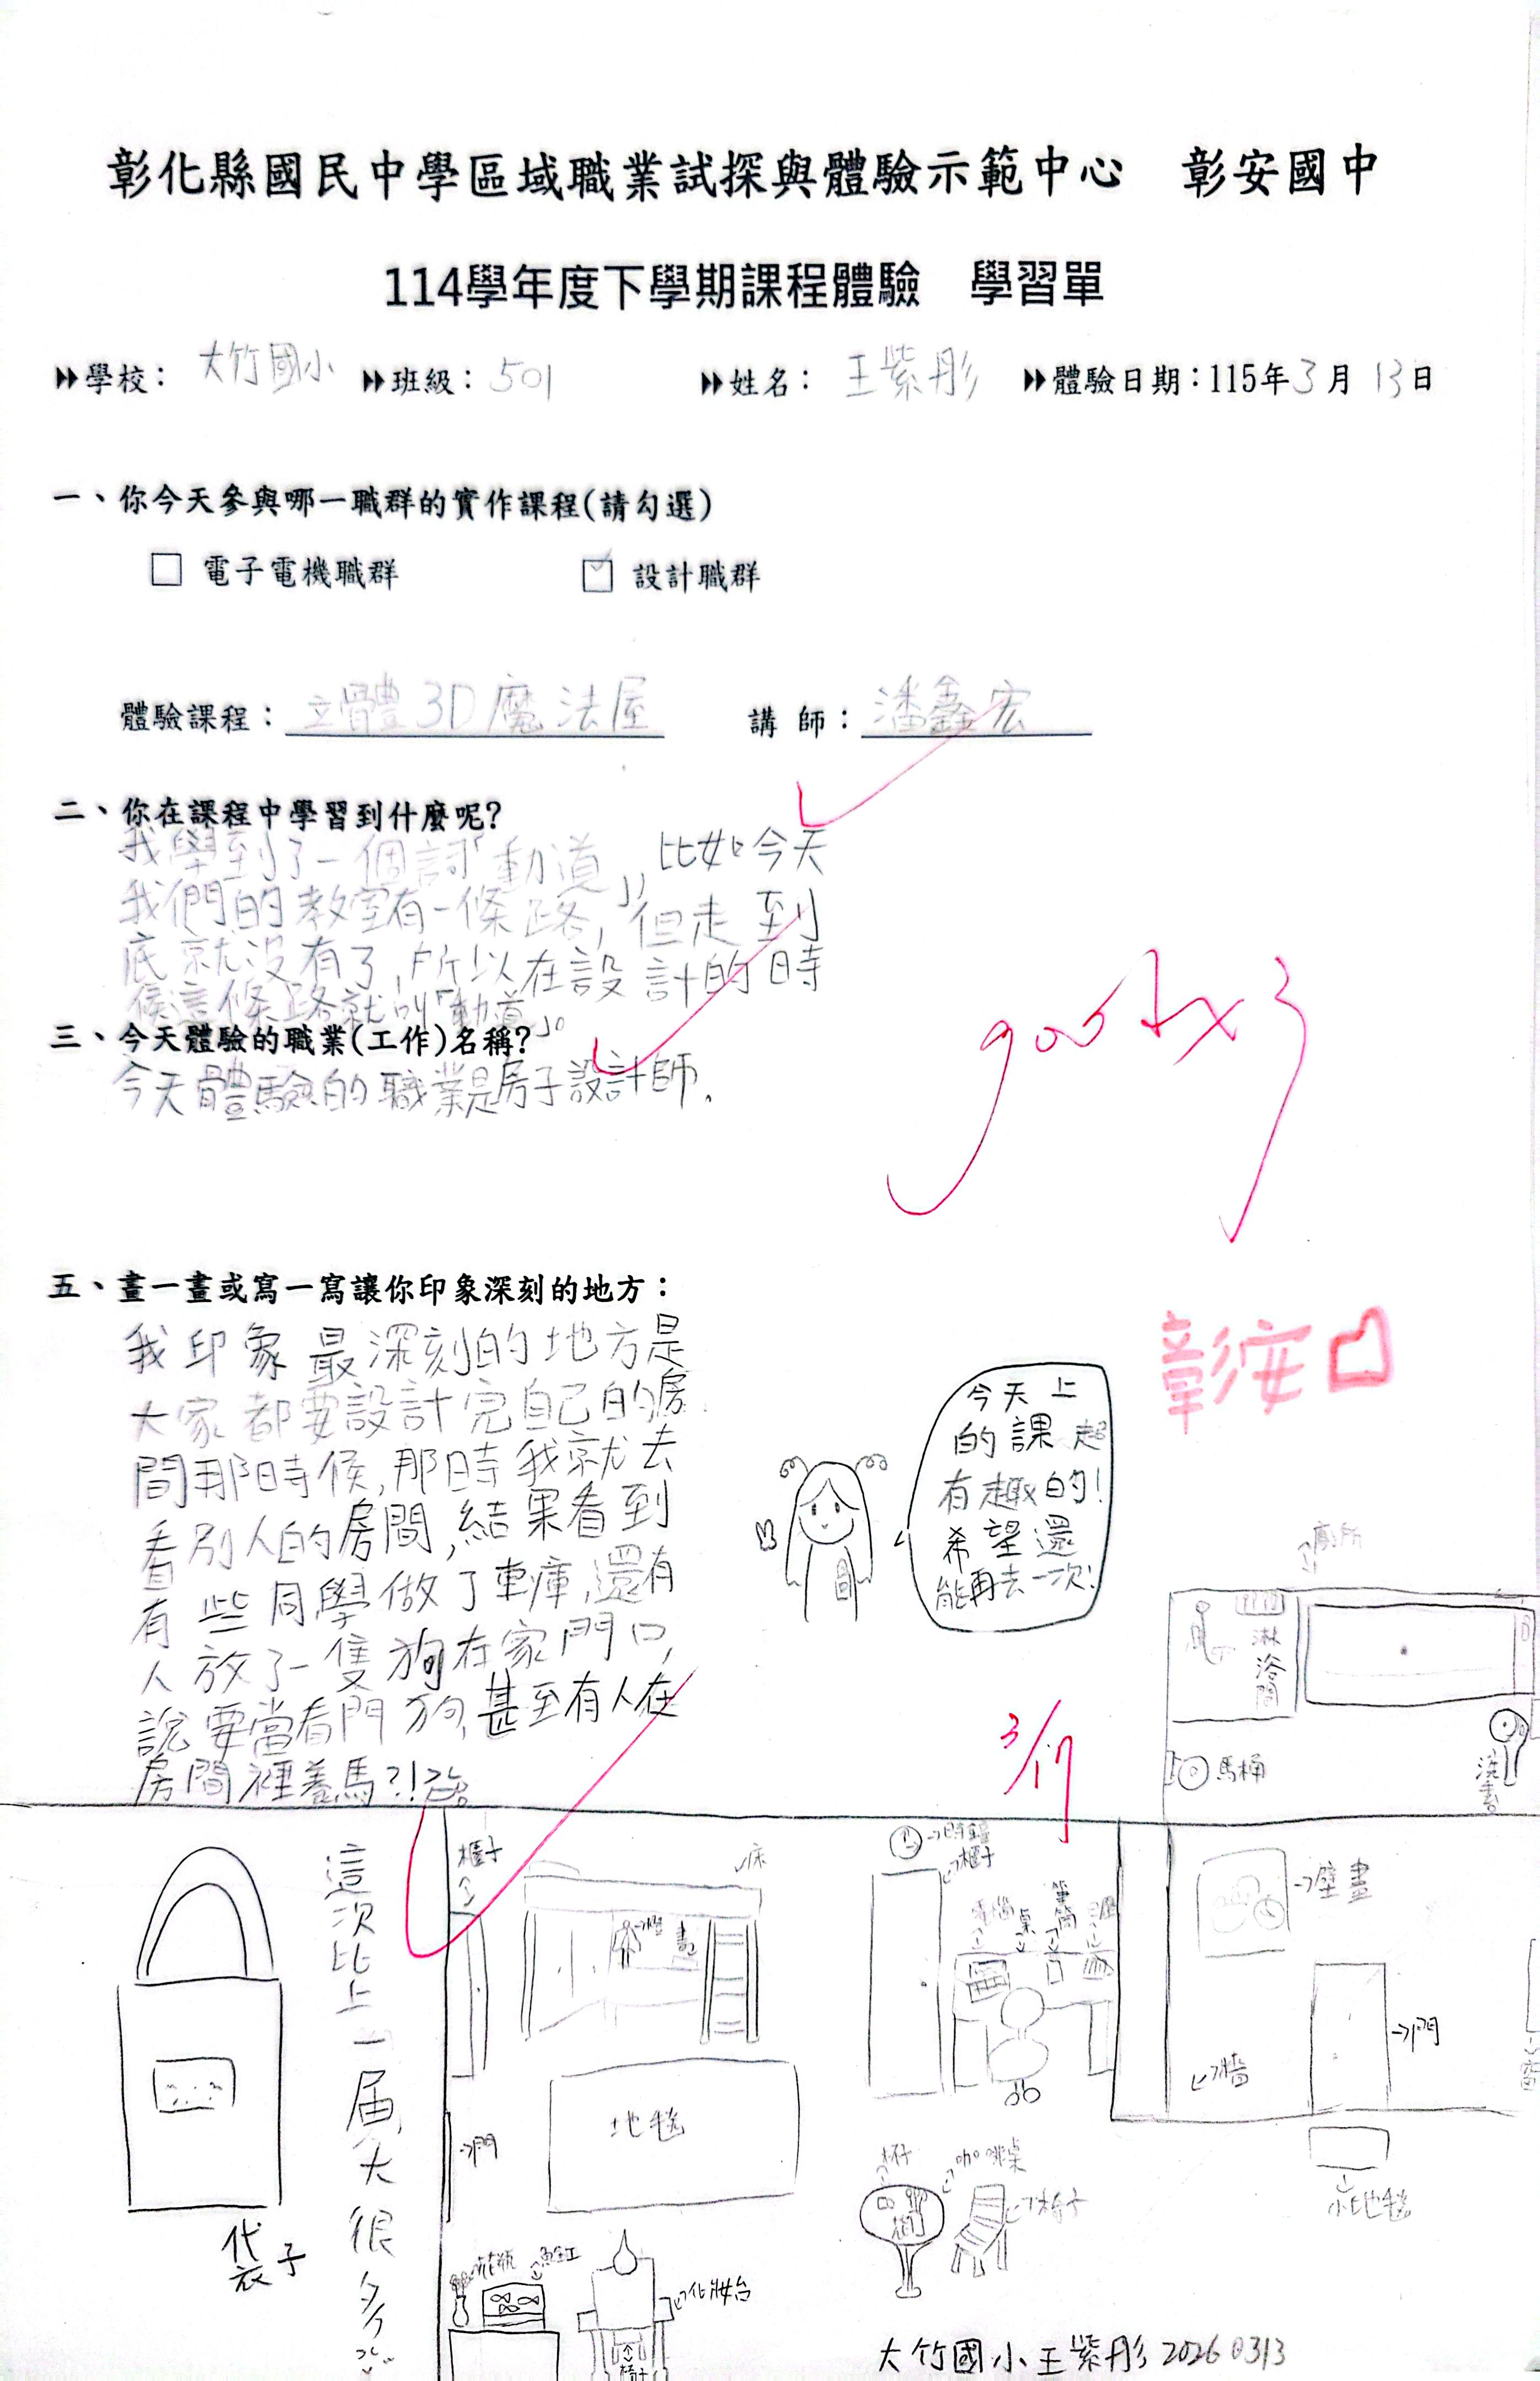 彰化縣國民中學區域職業試探與體驗示範中心　彰安國中
114學年度下學期課程體驗　學習單
學校： 大竹國小 班級：501 姓名： 王紫彤 體驗日期：115年3月13日
一、你今天參與哪一職群的實作課程(請勾選)
電子電機職群 設計職群
體驗課程：立體3D魔法屋 講 師：潘鑫宏
二、你在課程中學習到什麼呢?
我學到了一個詞「動道」,比如今天
我們的教室有一條路,但走到
底就沒有了,所以在設計的時
候這條路就叫「動道」。
三、今天體驗的職業(工作)名稱?
今天體驗的職業是房子設計師。
goodx3
五、畫一畫或寫一寫讓你印象深刻的地方：
我印象最深刻的地方是
大家都要設計完自己的房
間那時候,那時我就去
看別人的房間,結果看到
有些同學做了車庫,還有
人放了一隻狗在家門口,
說要當看門狗,甚至有人在
房間裡養馬?!
今天上
的課超
有趣的!
希望還
能再去一次!
彰安
3/17
廁所
淋浴間
馬桶
袋子
這次比上一屆大很多
櫃子
床
書
地毯
門
花瓶
魚缸
化妝台
椅子
時鐘
櫃子
電腦
桌
筆筒
壁畫
牆
門
小地毯
杯子
咖啡桌
椅子
大竹國小王紫彤20260313